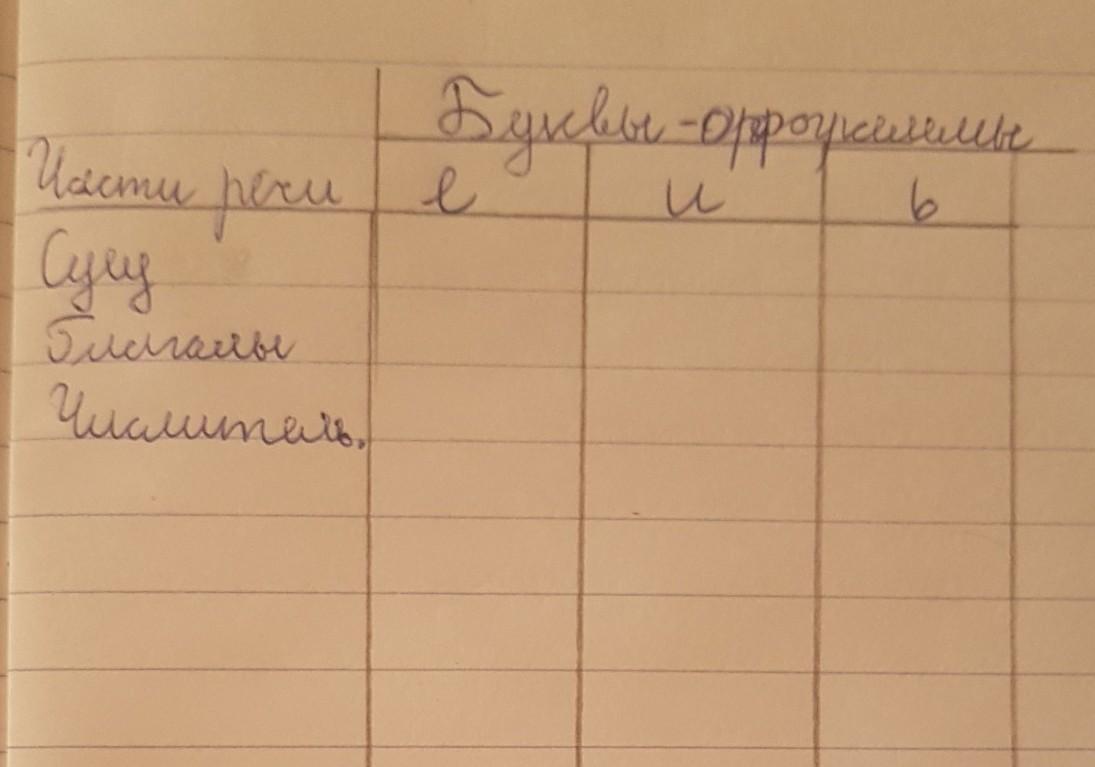 Буквы-орфограммы
Части речи е и ь
Сущ
Глаголы
Числитель.